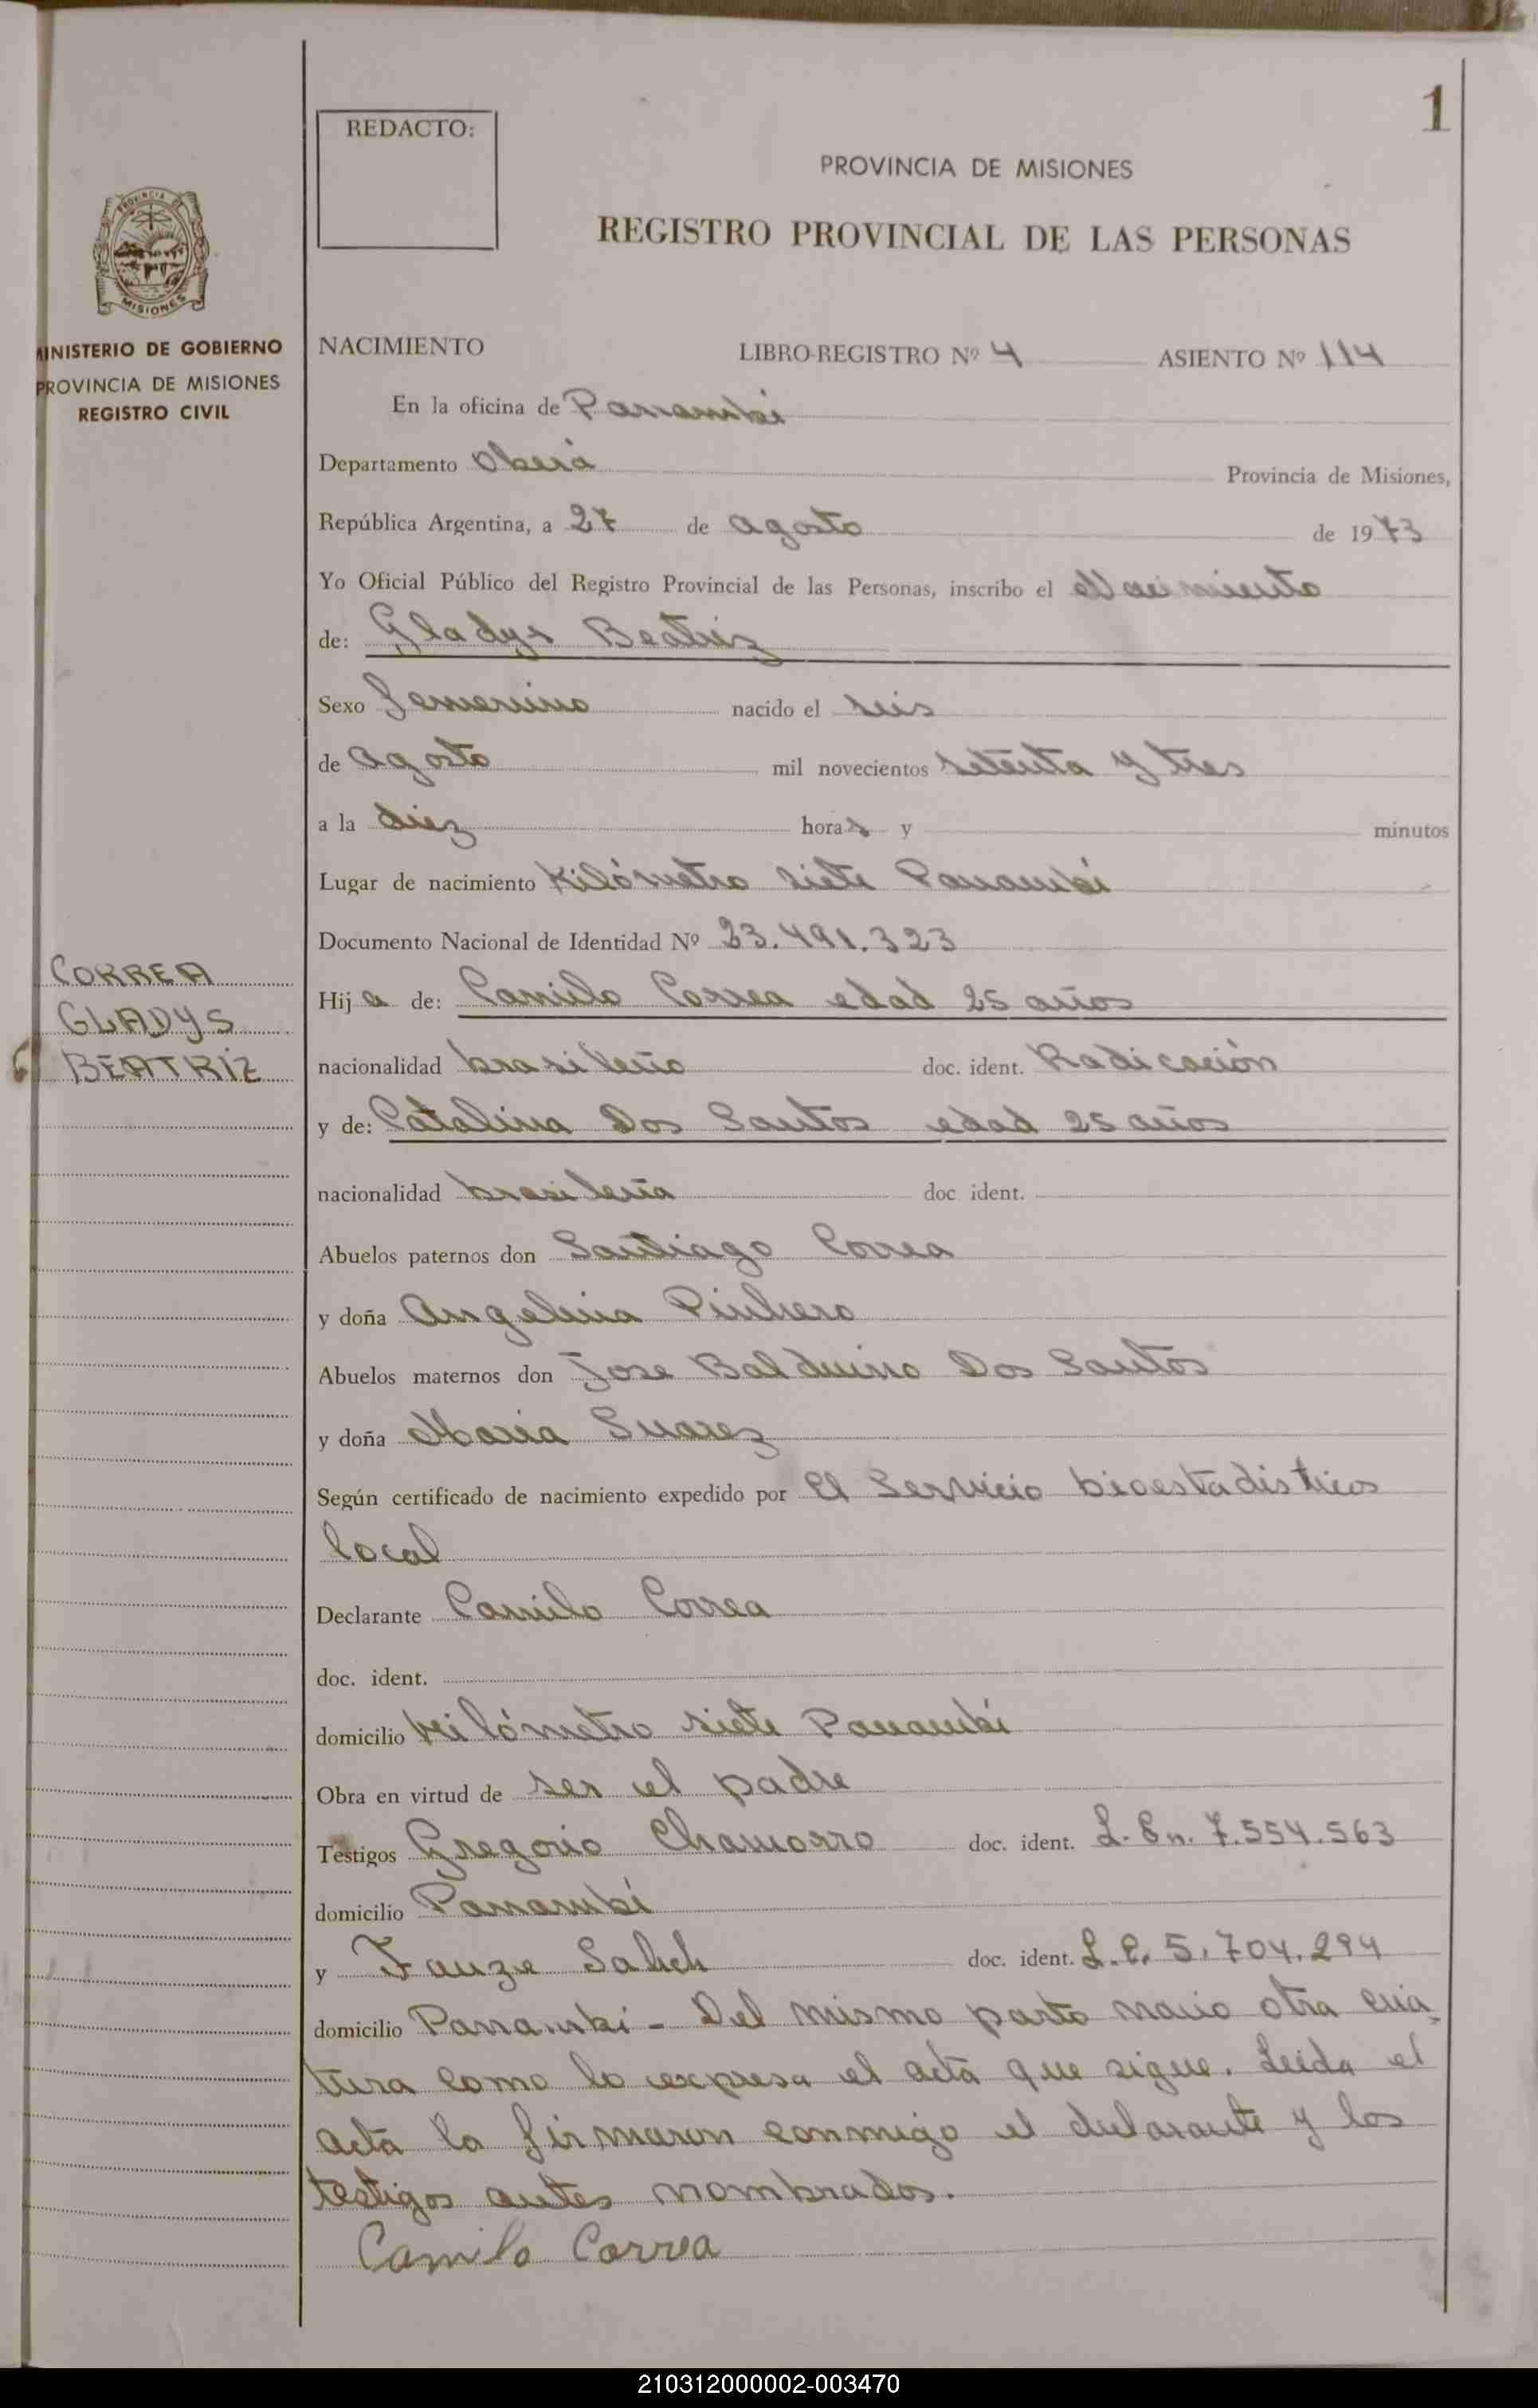 1
REDACTO:
PROVINCIA DE MISIONES
REGISTRO PROVINCIAL DE LAS PERSONAS
PROVINCIA DE
MISIONES
MINISTERIO DE GOBIERNO
PROVINCIA DE MISIONES
REGISTRO CIVIL
NACIMIENTO LIBRO-REGISTRO Nº 4 ASIENTO Nº 114
En la oficina de Panambí
Departamento Oberá Provincia de Misiones,
República Argentina, a 27 de agosto de 1973
Yo Oficial Público del Registro Provincial de las Personas, inscribo el Nacimiento
de: Gladys Beatriz
Sexo femenino nacido el seis
de agosto mil novecientos setenta y tres
a la diez horas y minutos
Lugar de nacimiento kilómetro siete Panambí
Documento Nacional de Identidad Nº 23.491.323
CORREA
GLADYS
BEATRIZ
Hij a de: Camilo Correa edad 25 años
nacionalidad brasileño doc. ident. Radicación
y de: Catalina Dos Santos edad 25 años
nacionalidad brasileña doc ident.
Abuelos paternos don Santiago Correa
y doña Angelina Pinhero
Abuelos maternos don Jose Balduino Dos Santos
y doña Maria Suarez
Según certificado de nacimiento expedido por El Servicio bioestadisticos
local
Declarante Camilo Correa
doc. ident.
domicilio kilómetro siete Panambí
Obra en virtud de ser el padre
Testigos Gregorio Chamorro doc. ident. L. En. 7.554.563
domicilio Panambí
y Fauze Saleh doc. ident. L. E. 5.704.294
domicilio Panambi - Del mismo parto nacio otra cria
tura como lo expresa el acta que sigue. Leida el
acta la firmaron conmigo el declarante y los
testigos antes nombrados.
Camilo Correa
210312000002-003470